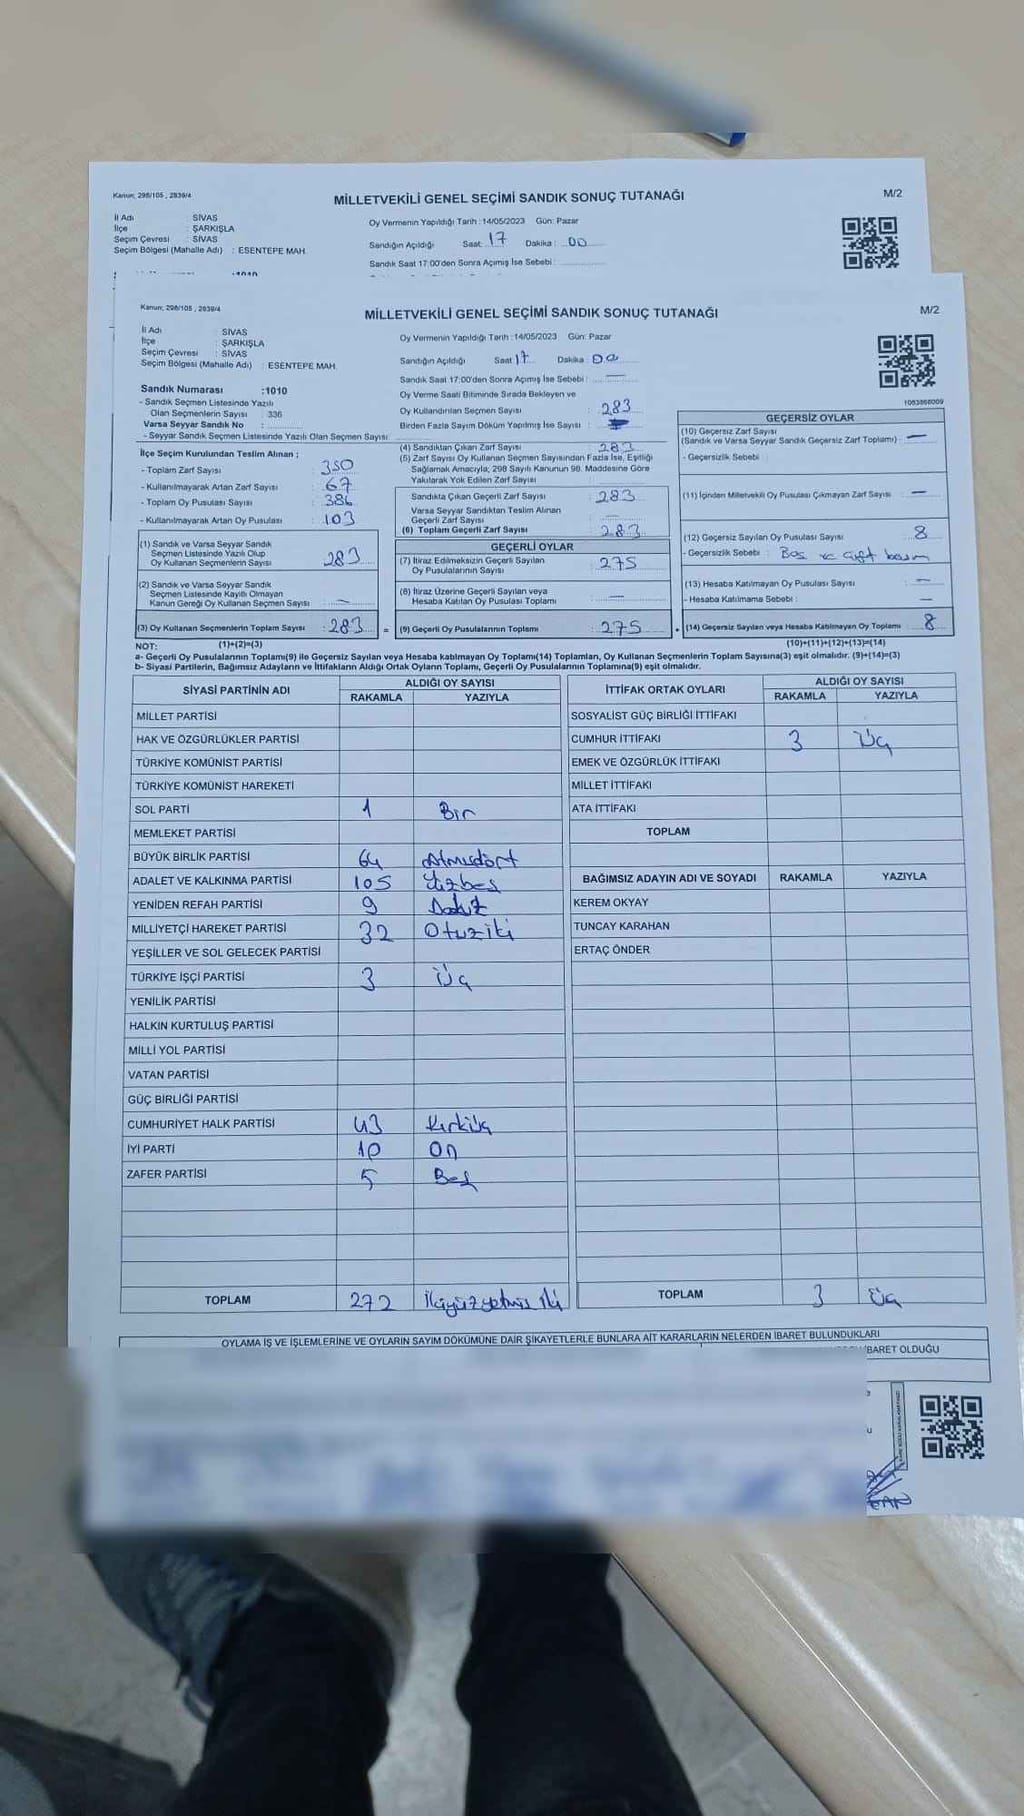 Kanun; 298/105 , 2839/4
MİLLETVEKİLİ GENEL SEÇİMİ SANDIK SONUÇ TUTANAĞI
M/2
İl Adı : SİVAS
İlçe : ŞARKIŞLA
Seçim Çevresi : SİVAS
Seçim Bölgesi (Mahalle Adı) : ESENTEPE MAH.
Oy Vermenin Yapıldığı Tarih : 14/05/2023 Gün: Pazar
Sandığın Açıldığı Saat: 17 Dakika : 00
Sandık Saat 17:00'den Sonra Açımış İse Sebebi :
Kanun; 298/105 , 2839/4
MİLLETVEKİLİ GENEL SEÇİMİ SANDIK SONUÇ TUTANAĞI
M/2
İl Adı : SİVAS
İlçe : ŞARKIŞLA
Seçim Çevresi : SİVAS
Seçim Bölgesi (Mahalle Adı) : ESENTEPE MAH.
Sandık Numarası :1010
- Sandık Seçmen Listesinde Yazılı
Olan Seçmenlerin Sayısı : 336
Varsa Seyyar Sandık No :
- Seyyar Sandık Seçmen Listesinde Yazılı Olan Seçmen Sayısı :
İlçe Seçim Kurulundan Teslim Alınan ;
- Toplam Zarf Sayısı : 350
- Kullanılmayarak Artan Zarf Sayısı : 67
- Toplam Oy Pusulası Sayısı : 386
- Kullanılmayarak Artan Oy Pusulası : 103
(1) Sandık ve Varsa Seyyar Sandık
Seçmen Listesinde Yazılı Olup
Oy Kullanan Seçmenlerin Sayısı : 283
(2) Sandık ve Varsa Seyyar Sandık
Seçmen Listesinde Kayıtlı Olmayan
Kanun Gereği Oy Kullanan Seçmen Sayısı : —
(3) Oy Kullanan Seçmenlerin Toplam Sayısı : 283
Oy Vermenin Yapıldığı Tarih : 14/05/2023 Gün: Pazar
Sandığın Açıldığı Saat 17 Dakika : 00
Sandık Saat 17:00'den Sonra Açımış İse Sebebi : —
Oy Verme Saati Bitiminde Sırada Bekleyen ve
Oy Kullandırılan Seçmen Sayısı : 283
Birden Fazla Sayım Döküm Yapılmış İse Sayısı :
(4) Sandıktan Çıkan Zarf Sayısı : 283
(5) Zarf Sayısı Oy Kullanan Seçmen Sayısından Fazla İse, Eşitliği
Sağlamak Amacıyla; 298 Sayılı Kanunun 98. Maddesine Göre
Yakılarak Yok Edilen Zarf Sayısı :
Sandıkta Çıkan Geçerli Zarf Sayısı : 283
Varsa Seyyar Sandıktan Teslim Alınan
Geçerli Zarf Sayısı : —
(6) Toplam Geçerli Zarf Sayısı : 283
GEÇERLİ OYLAR
(7) İtiraz Edilmeksizin Geçerli Sayılan
Oy Pusulalarının Sayısı : 275
(8) İtiraz Üzerine Geçerli Sayılan veya
Hesaba Katılan Oy Pusulası Toplamı : —
= (9) Geçerli Oy Pusulalarının Toplamı : 275
1053866009
GEÇERSİZ OYLAR
(10) Geçersiz Zarf Sayısı
(Sandık ve Varsa Seyyar Sandık Geçersiz Zarf Toplamı) : —
- Geçersizlik Sebebi :
(11) İçinden Milletvekili Oy Pusulası Çıkmayan Zarf Sayısı : —
(12) Geçersiz Sayılan Oy Pusulası Sayısı : 8
- Geçersizlik Sebebi : Boş ve çift basım
(13) Hesaba Katılmayan Oy Pusulası Sayısı : —
- Hesaba Katılmama Sebebi : —
+ (14) Geçersiz Sayılan veya Hesaba Katılmayan Oy Toplamı : 8
NOT: (1)+(2)=(3) (10)+(11)+(12)+(13)=(14)
a- Geçerli Oy Pusulalarının Toplamı(9) ile Geçersiz Sayılan veya Hesaba katılmayan Oy Toplamı(14) Toplamları, Oy Kullanan Seçmenlerin Toplam Sayısına(3) eşit olmalıdır. (9)+(14)=(3)
b- Siyasi Partilerin, Bağımsız Adayların ve İttifakların Aldığı Ortak Oyların Toplamı, Geçerli Oy Pusulalarının Toplamına(9) eşit olmalıdır.
SİYASİ PARTİNİN ADI ALDIĞI OY SAYISI
RAKAMLA YAZIYLA
MİLLET PARTİSİ
HAK VE ÖZGÜRLÜKLER PARTİSİ
TÜRKİYE KOMÜNİST PARTİSİ
TÜRKİYE KOMÜNİST HAREKETİ
SOL PARTİ 1 Bir
MEMLEKET PARTİSİ
BÜYÜK BİRLİK PARTİSİ 64 Atmışdört
ADALET VE KALKINMA PARTİSİ 105 Yüzbeş
YENİDEN REFAH PARTİSİ 9 Dokuz
MİLLİYETÇİ HAREKET PARTİSİ 32 Otuziki
YEŞİLLER VE SOL GELECEK PARTİSİ
TÜRKİYE İŞÇİ PARTİSİ 3 Üç
YENİLİK PARTİSİ
HALKIN KURTULUŞ PARTİSİ
MİLLİ YOL PARTİSİ
VATAN PARTİSİ
GÜÇ BİRLİĞİ PARTİSİ
CUMHURİYET HALK PARTİSİ 43 Kırküç
İYİ PARTİ 10 On
ZAFER PARTİSİ 5 Beş
TOPLAM 272 İkiyüzyetmiş iki
İTTİFAK ORTAK OYLARI ALDIĞI OY SAYISI
RAKAMLA YAZIYLA
SOSYALİST GÜÇ BİRLİĞİ İTTİFAKI
CUMHUR İTTİFAKI 3 Üç
EMEK VE ÖZGÜRLÜK İTTİFAKI
MİLLET İTTİFAKI
ATA İTTİFAKI
TOPLAM
BAĞIMSIZ ADAYIN ADI VE SOYADI RAKAMLA YAZIYLA
KEREM OKYAY
TUNCAY KARAHAN
ERTAÇ ÖNDER
TOPLAM 3 Üç
OYLAMA İŞ VE İŞLEMLERİNE VE OYLARIN SAYIM DÖKÜMÜNE DAİR ŞİKAYETLERLE BUNLARA AİT KARARLARIN NELERDEN İBARET BULUNDUKLARI
İBARET OLDUĞU